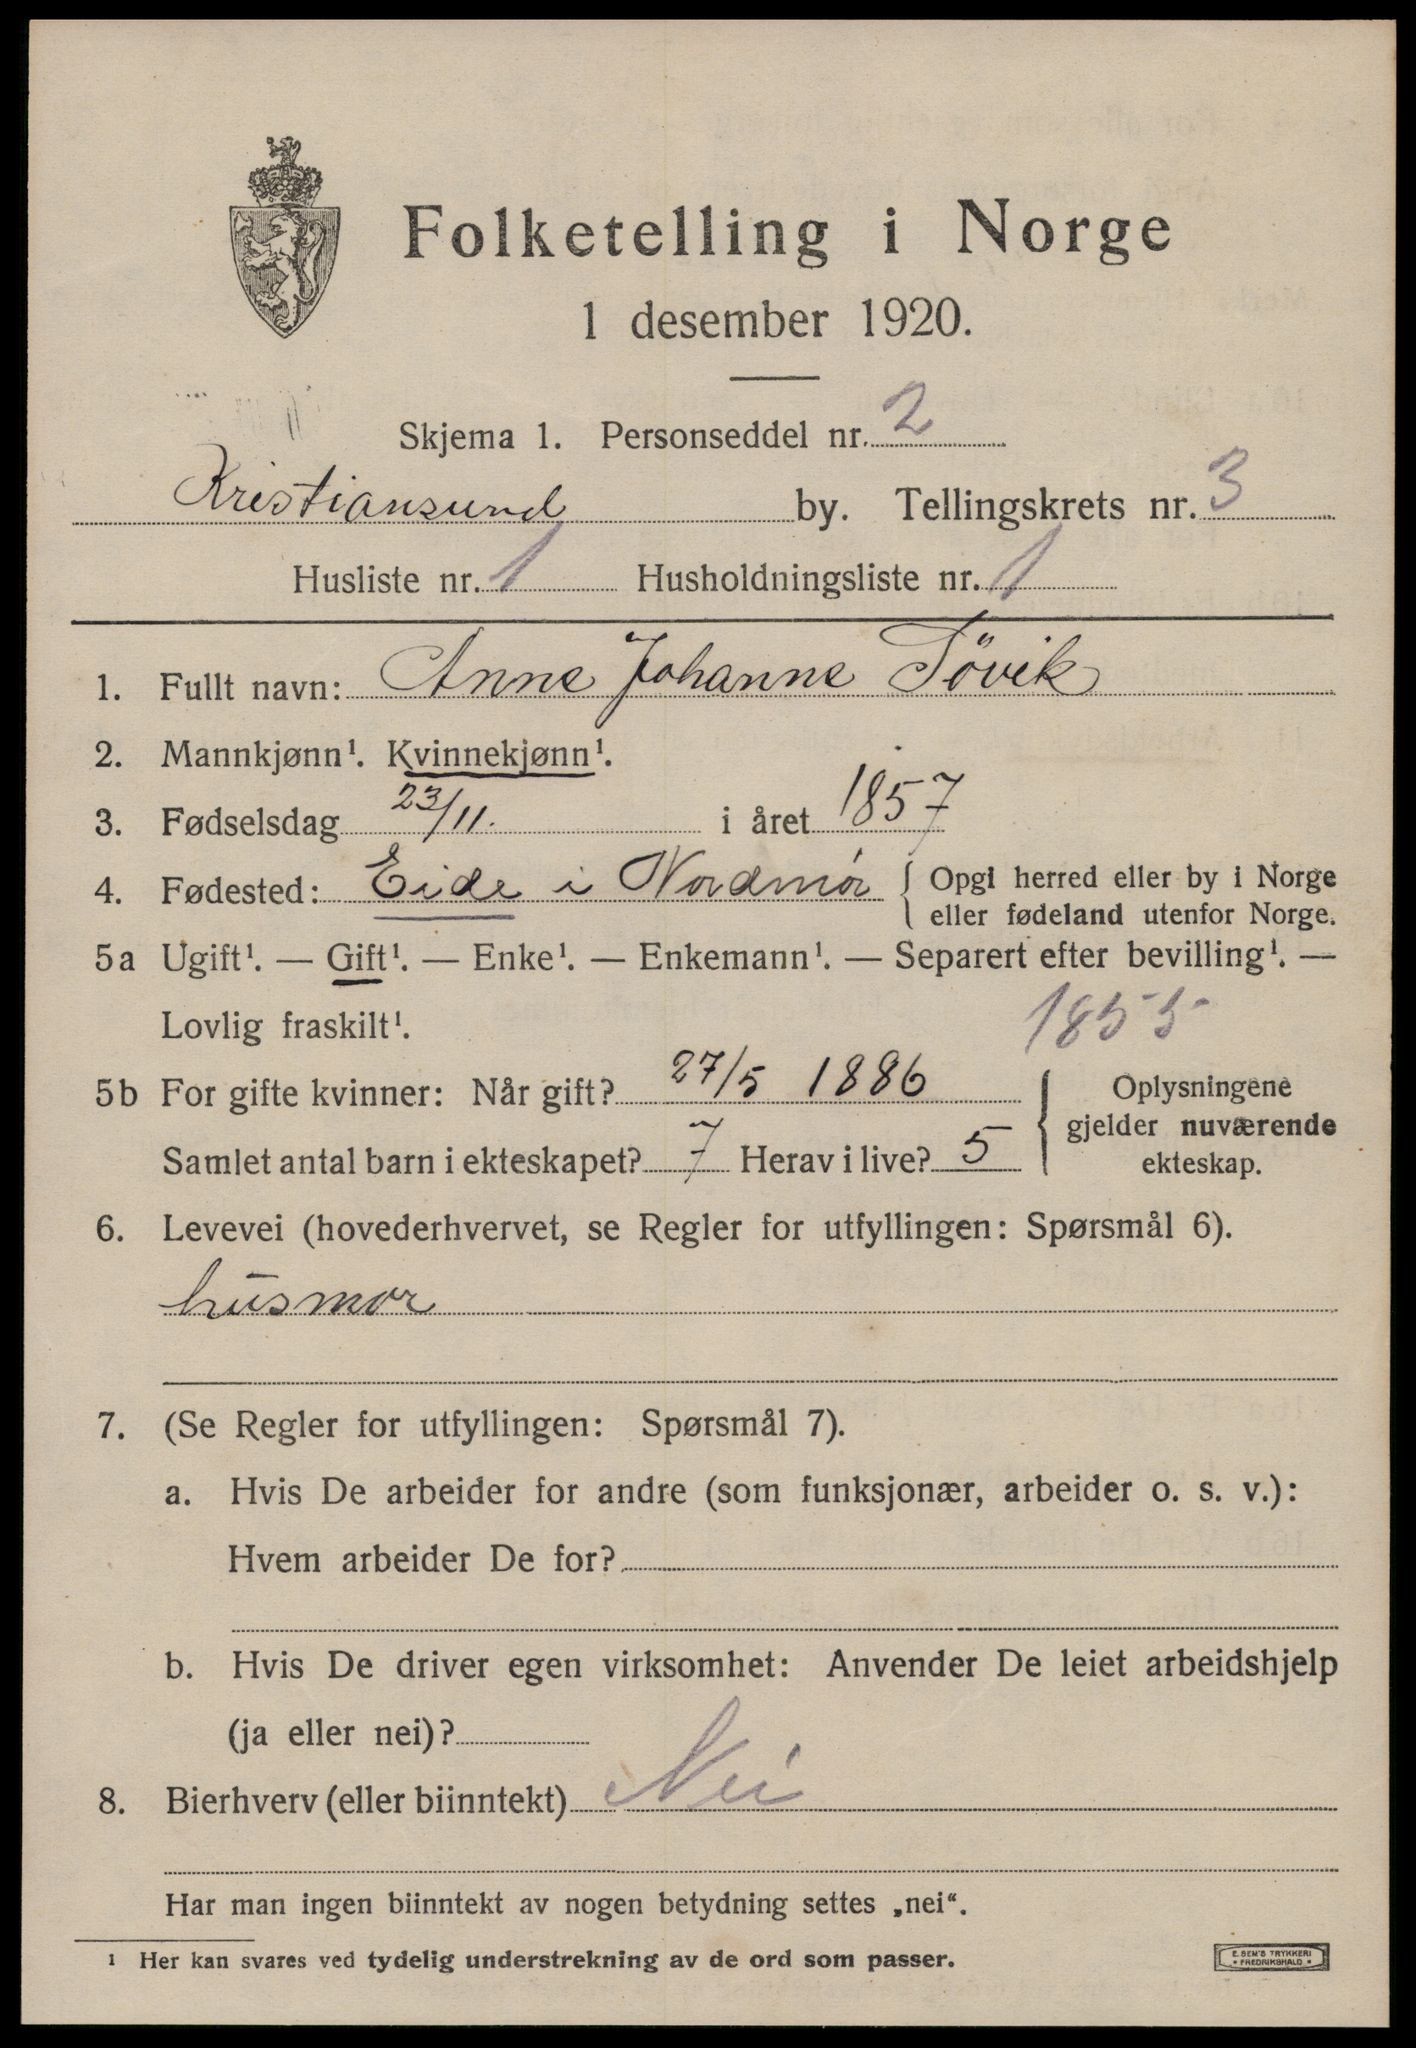 Folketelling i Norge
1 desember 1920.
Skjema 1. Personseddel nr. 2
Kristiansund by. Tellingskrets nr. 3
Husliste nr. 1 Husholdningsliste nr. 1
1. Fullt navn: Anne Johanne Tövik
2. Mannkjønn¹. Kvinnekjønn¹.
3. Fødselsdag 23/11. i året 1857
4. Fødested: Eide i Nordmør { Opgi herred eller by i Norge
eller fødeland utenfor Norge.
5a Ugift¹. — Gift¹. — Enke¹. — Enkemann¹. — Separert efter bevilling¹. —
Lovlig fraskilt¹. 1855
5b For gifte kvinner: Når gift? 27/5 1886
Samlet antal barn i ekteskapet? 7 Herav i live? 5
{ Oplysningene
gjelder nuværende
ekteskap.
6. Levevei (hovederhvervet, se Regler for utfyllingen: Spørsmål 6).
husmor
7. (Se Regler for utfyllingen: Spørsmål 7).
a. Hvis De arbeider for andre (som funksjonær, arbeider o. s. v.):
Hvem arbeider De for?
b. Hvis De driver egen virksomhet: Anvender De leiet arbeidshjelp
(ja eller nei)?
8. Bierhverv (eller biinntekt) Nei
Har man ingen biinntekt av nogen betydning settes „nei“.
¹ Her kan svares ved tydelig understrekning av de ord som passer.
E. SEM'S TRYKKERI
* FREDRIKSHALD *